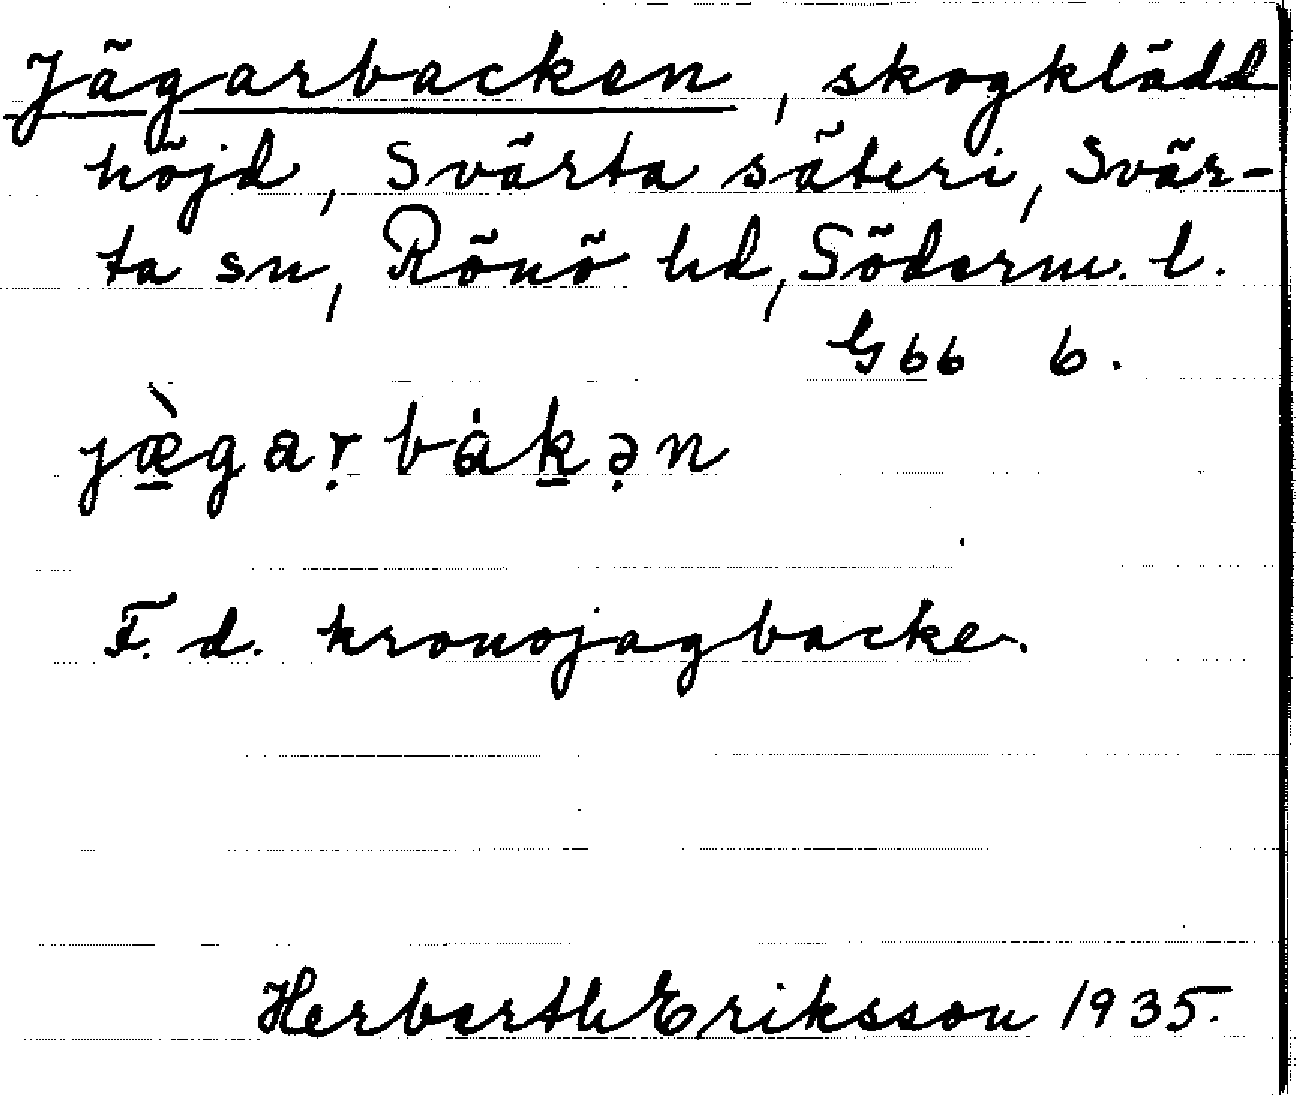 Jägarbacken, skogklädd
höjd, Svärta säteri, Svär-
ta sn, Rönö hd, Söderm. l.
G 66 6.
jæ̠̀gaṛbȧḵə̣n
F. d. kronojagbacke.
Herberth Eriksson 1935.